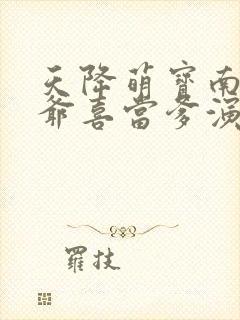 天降萌寶南
爺喜當爹演
羅技